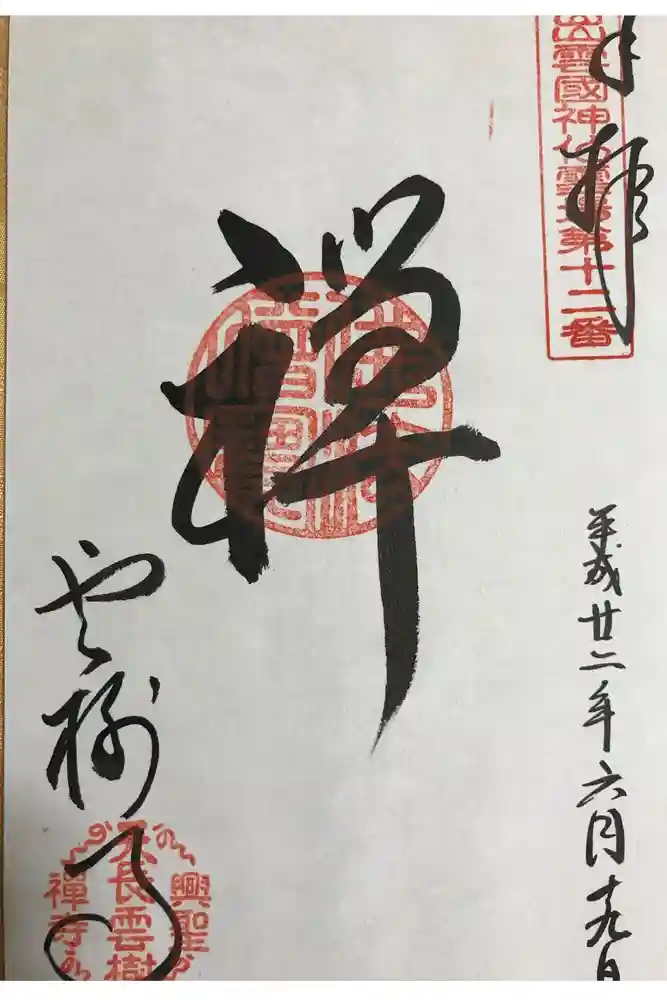 拝
出雲國神仏霊場第十二番
平成廿二年六月十九日
禅
雲樹寺
興聖
天長雲樹
禅寺